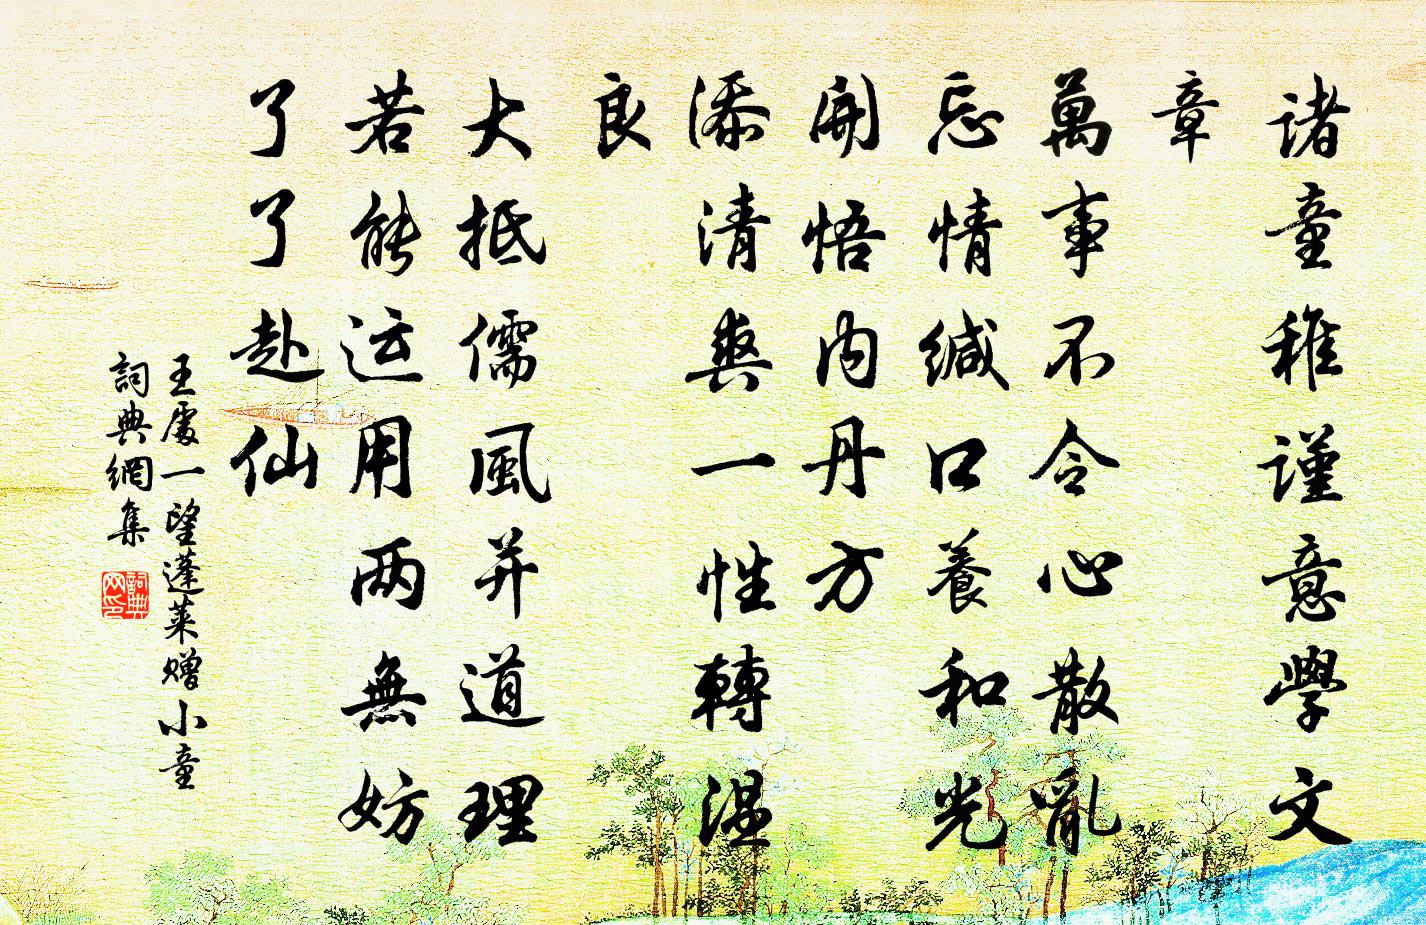 諸童稚謹意學文
章
萬事不令心散亂
忘情緘口養和光
開悟內丹方
添清爽一性轉温
良
大抵儒風并道理
若能运用两無妨
了了赴仙
王處一望蓬莱赠小童
詞典網集
詞典
网印